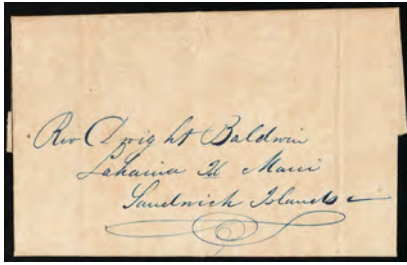 Rev Dwight Baldwin
Lahaina Maui
Sandwich Islands